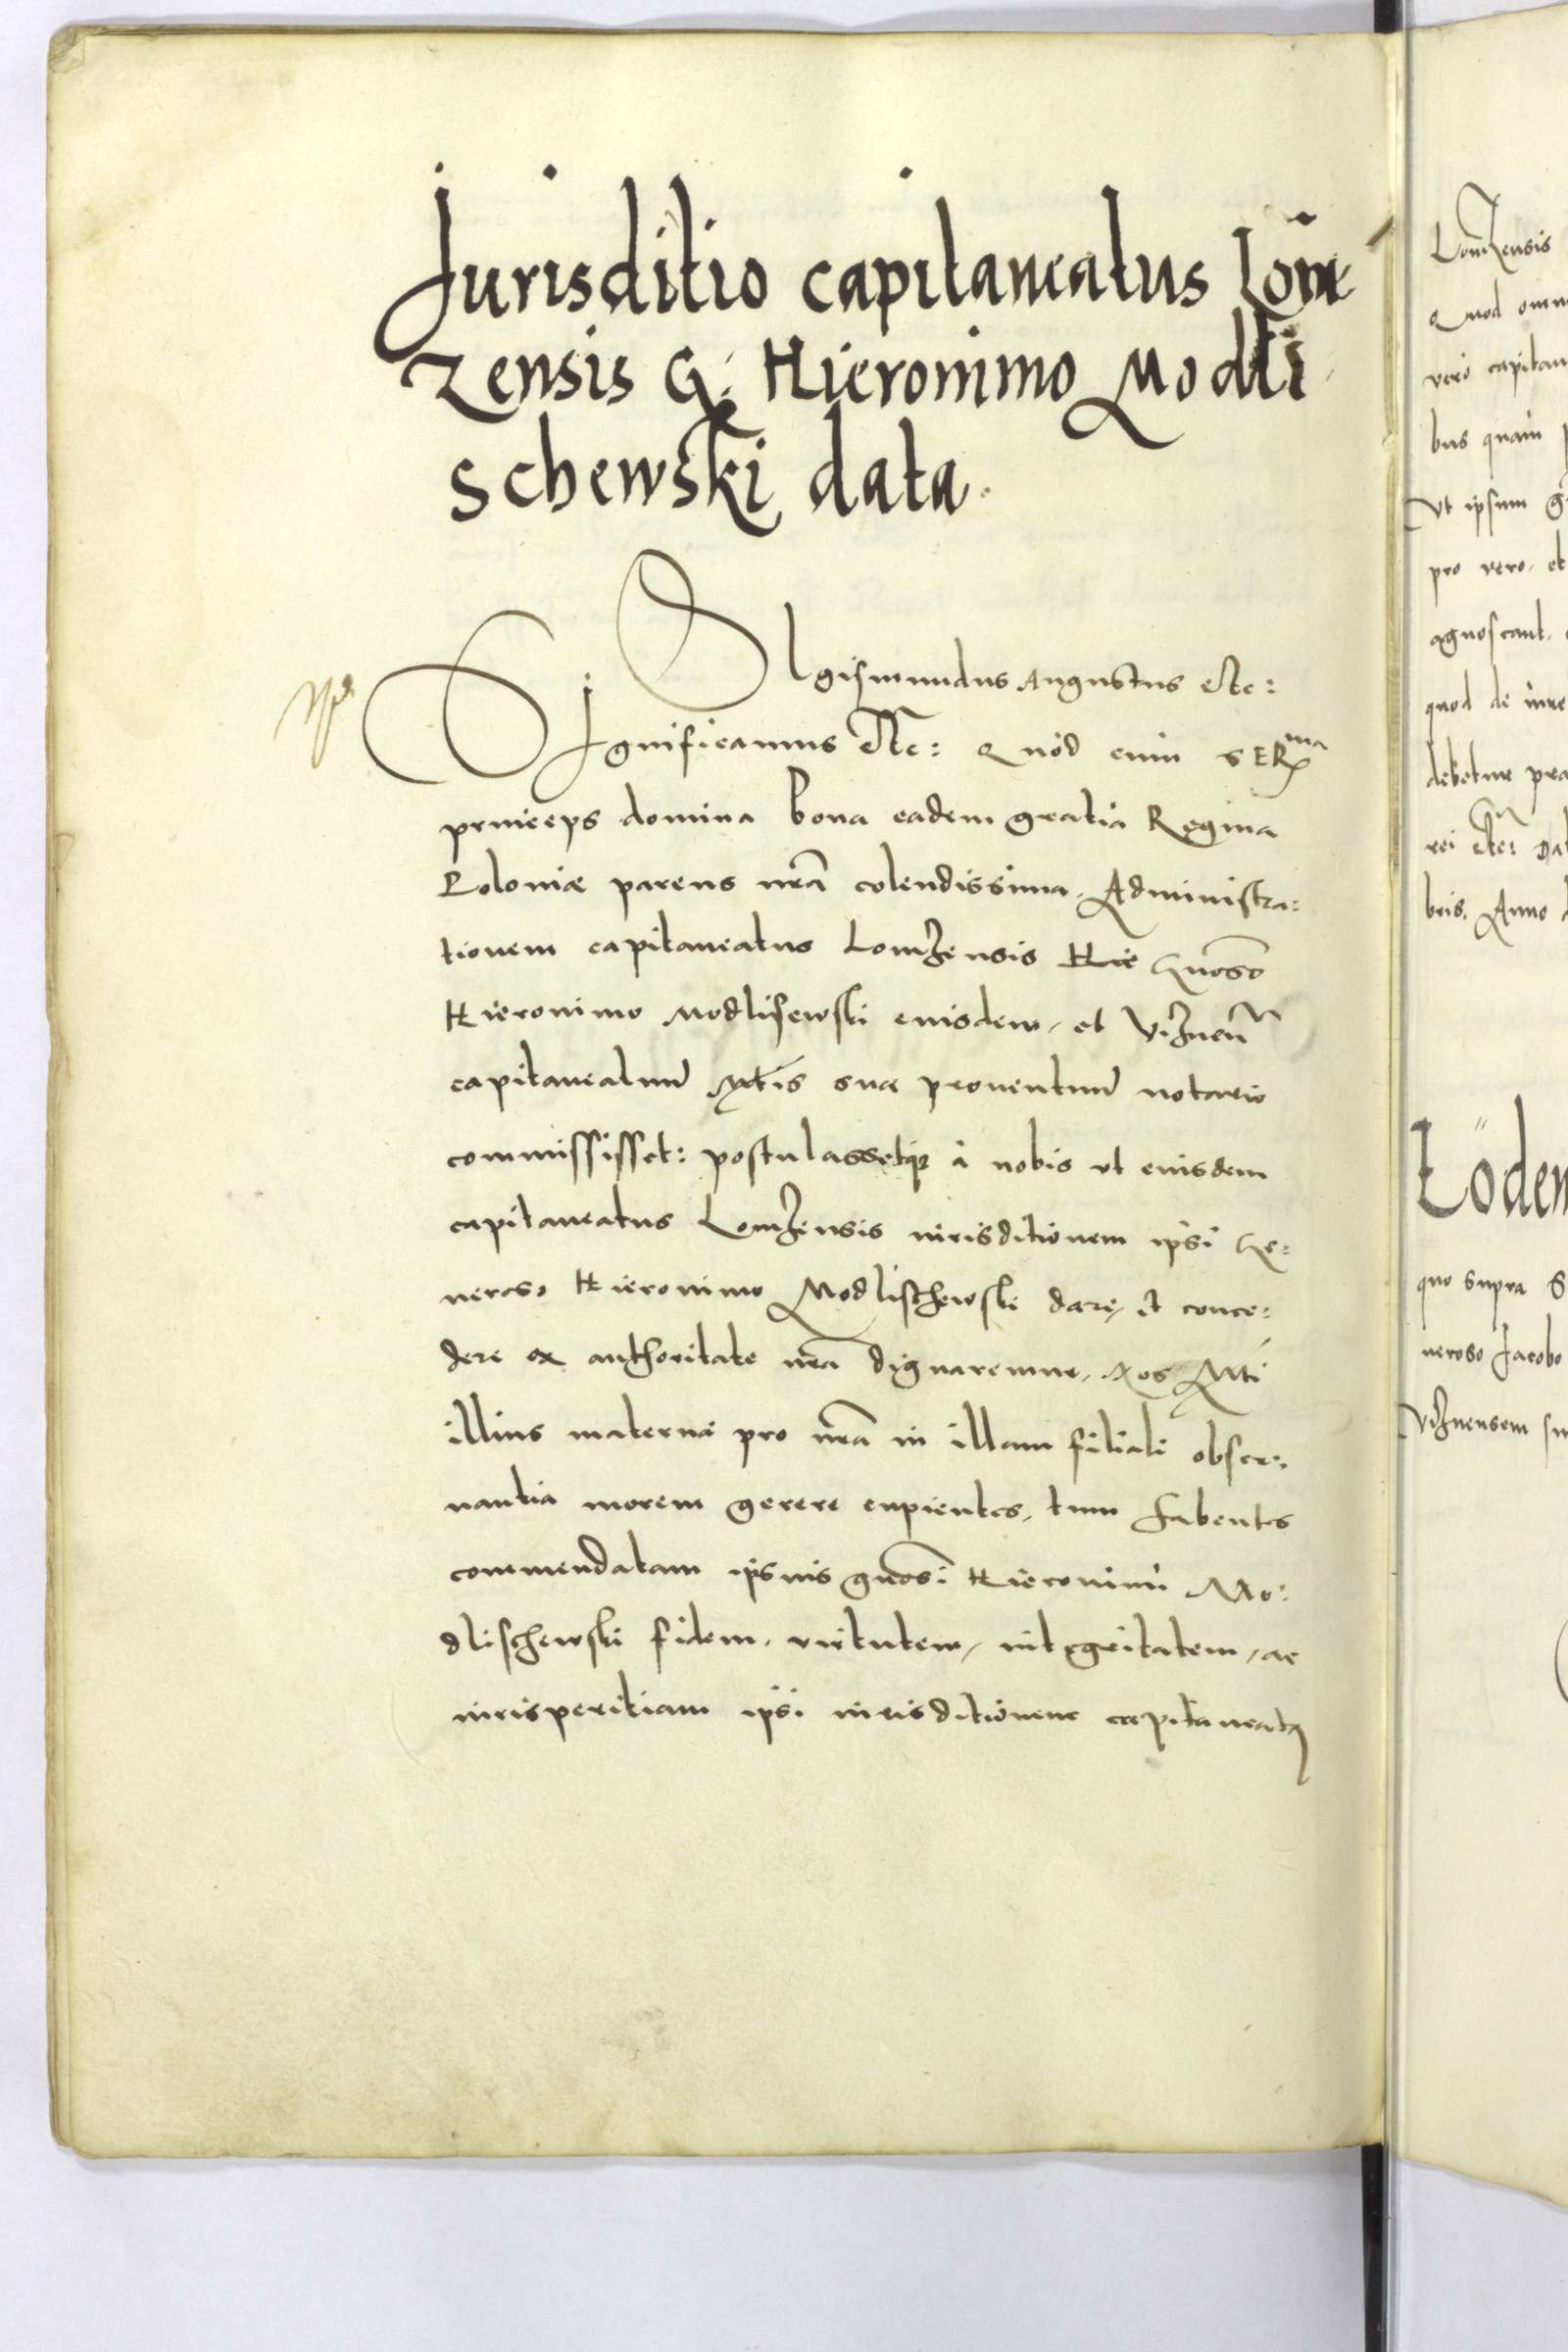 Jurisditio capitaneatus Lom̄
zensis G: Hieronimo Modli
schewski data.
SIgismundus Augustus etc:
SIgnificamus etc: Quòd cum SERma
princeps domina Bona eadem gratia Regina
Poloniæ parens nr̃a colendissima. Administra:
tionem capitaneatus Lomzensis Hie Gnoso
Hieronimo Modlisewski eiusdem, et Viznen̄
capitaneatuū Mtis suæ prouentuū notario
commississet: postulassetq3 à nobis vt eiusdem
capitaneatus Lomzensis iurisditionem ipsi Ge:
neroso Hieronimo Modlischewski dare, et conce:
dere ex authoritate nr̃a dignaremur. Nos Mti
illius maternæ pro nr̃a in illam filiali obser:
uantia morem gerere cupientes, tum habentes
commendatam ipsius gnosi Hieronimi Mo:
dlischewski fidem, virtutem, integritatem, ac
iurisperitiam ipsi iurisditionem capitaneatq
Lomzensis
Quod omn
vero capitan
bus quàm
Vt ipsum g
pro vero, et
agnoscant.
quod de iure
debetur pra
rei etc: Dat
bris. Anno
Eodem
quo supra
neroso Jacobo
Viznensem